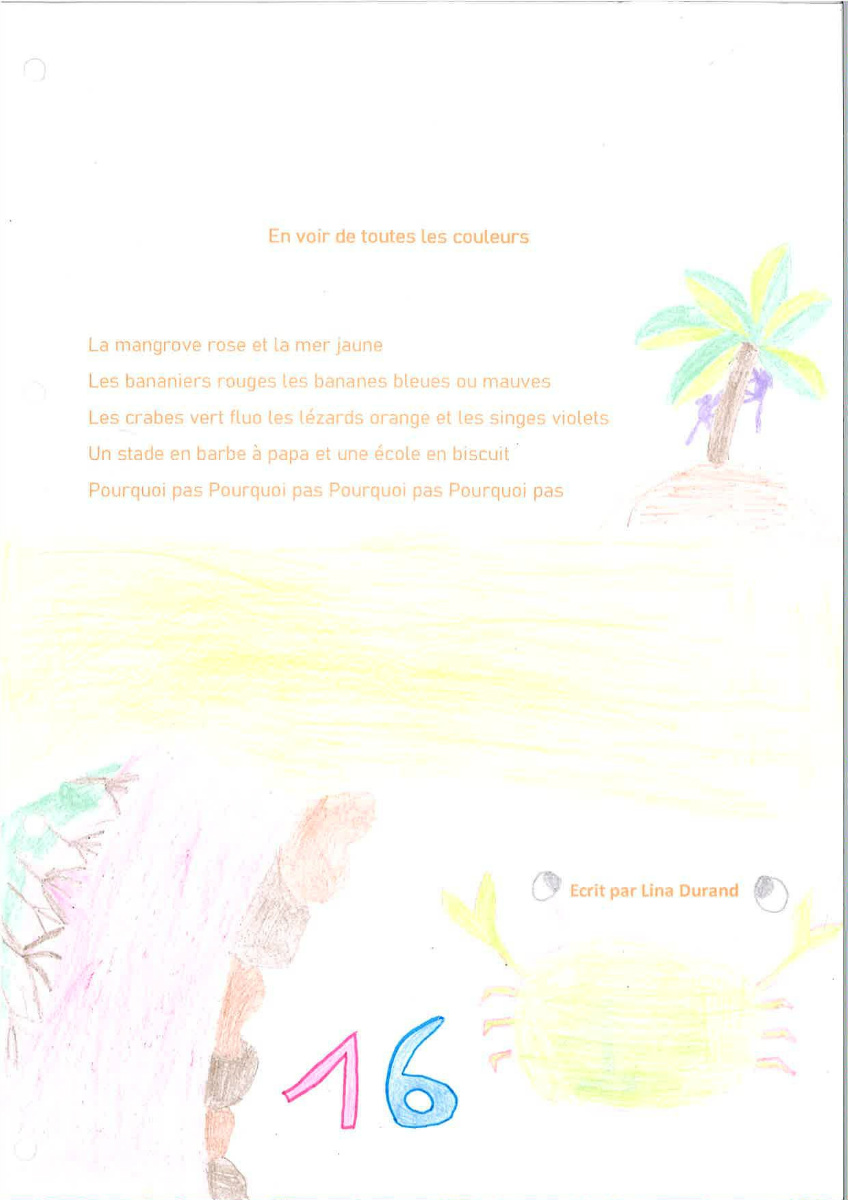 En voir de toutes les couleurs
La mangrove rose et la mer jaune
Les bananiers rouges les bananes bleues ou mauves
Les crabes vert fluo les lézards orange et les singes violets
Un stade en barbe à papa et une école en biscuit
Pourquoi pas Pourquoi pas Pourquoi pas Pourquoi pas
Ecrit par Lina Durand
16